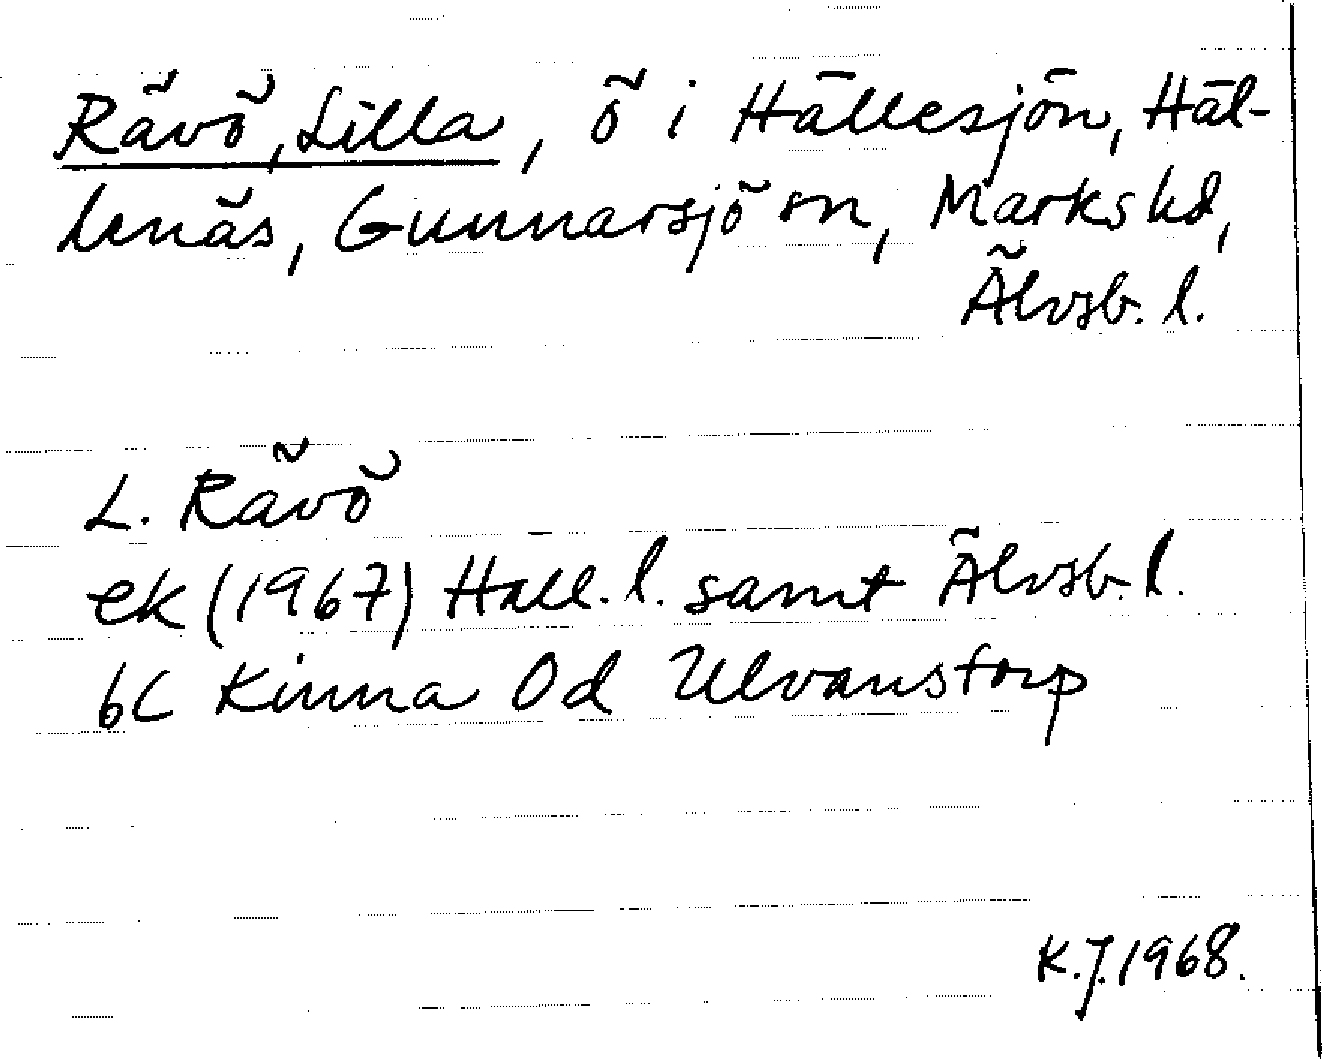 Rävö, Lilla, ö i Hällesjön, Häl-
lenäs, Gunnarsjö sn, Marks hd,
Älvsb. l.
L. Rävö
ek (1967) Hall. l. samt Älvsb. l.
6C Kinna 0d Ulvanstorp
K.J. 1968.